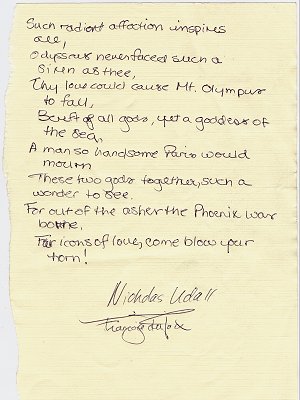 Such radiant affection inspires
all,
Odysseus never faced such a
siren as thee,
Thy love could cause Mt. Olympus
to fall,
Bereft of all gods, yet a goddess of
the sea,
A man so handsome Paris would
mourn
These two gods together, such a
wonder to see.
For out of the ashes the Phoenix was
borne,
For icons of love, come blow your
horn!
Nicholas Udall